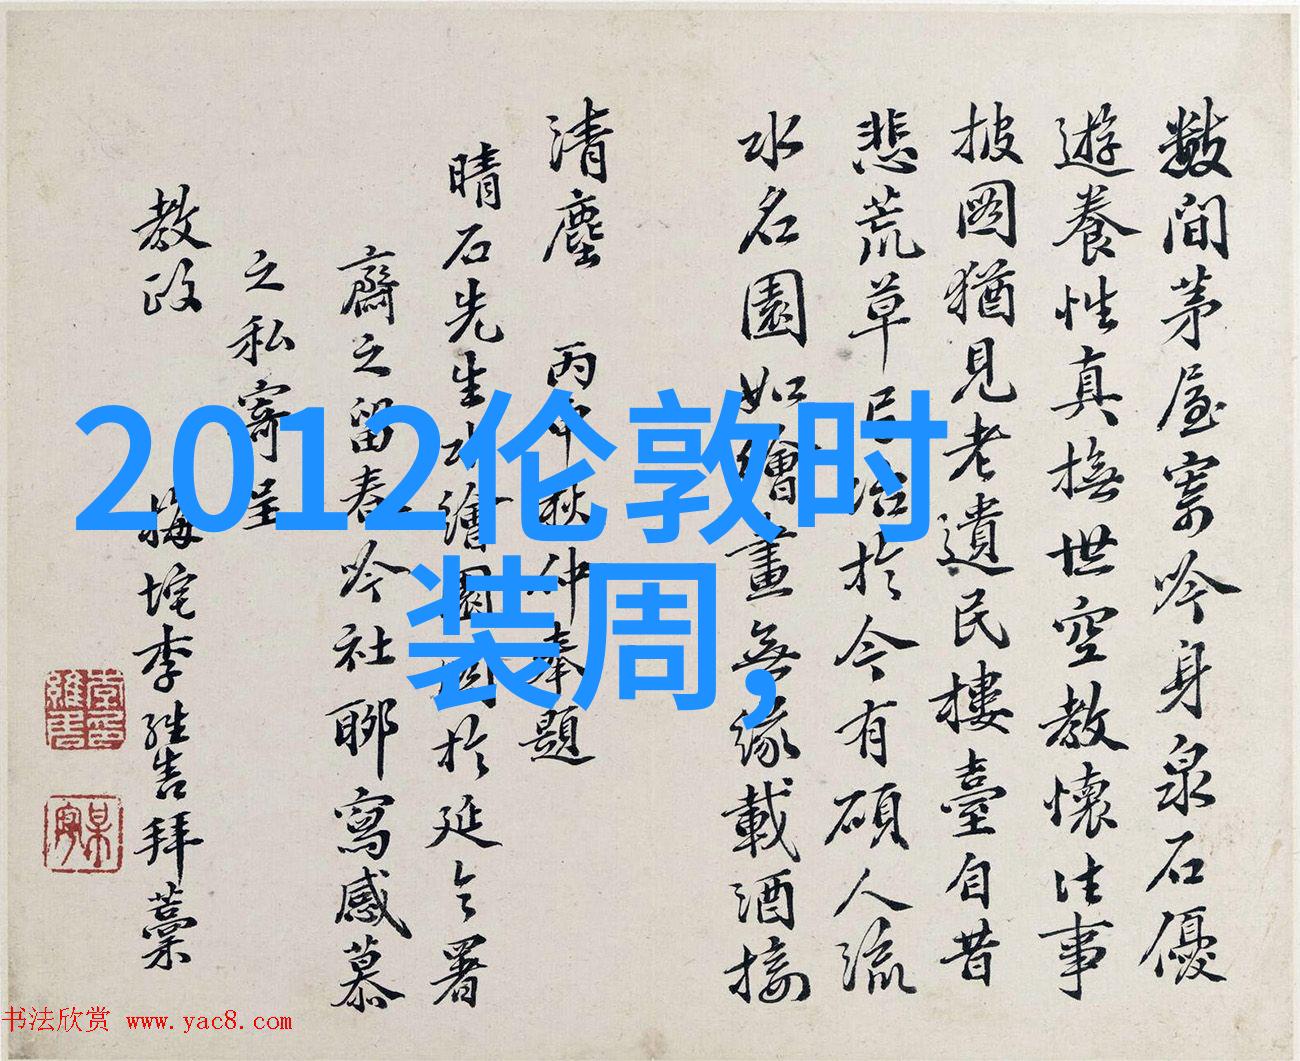 數間茅屋寄吟身泉石優
遊養性真撫世空教懷往事
披圖猶見老遺民樓臺自昔
悲荒草於今有碩人流
水名園如繪畫無緣載酒接
清塵
丙午秋仲奉題
晴石先生於延令署
齋之留春吟社聊寫感慕
之私寄呈
教政
李繼善拜藁
2012伦敦时
装周,
书法欣赏 www.yac8.com